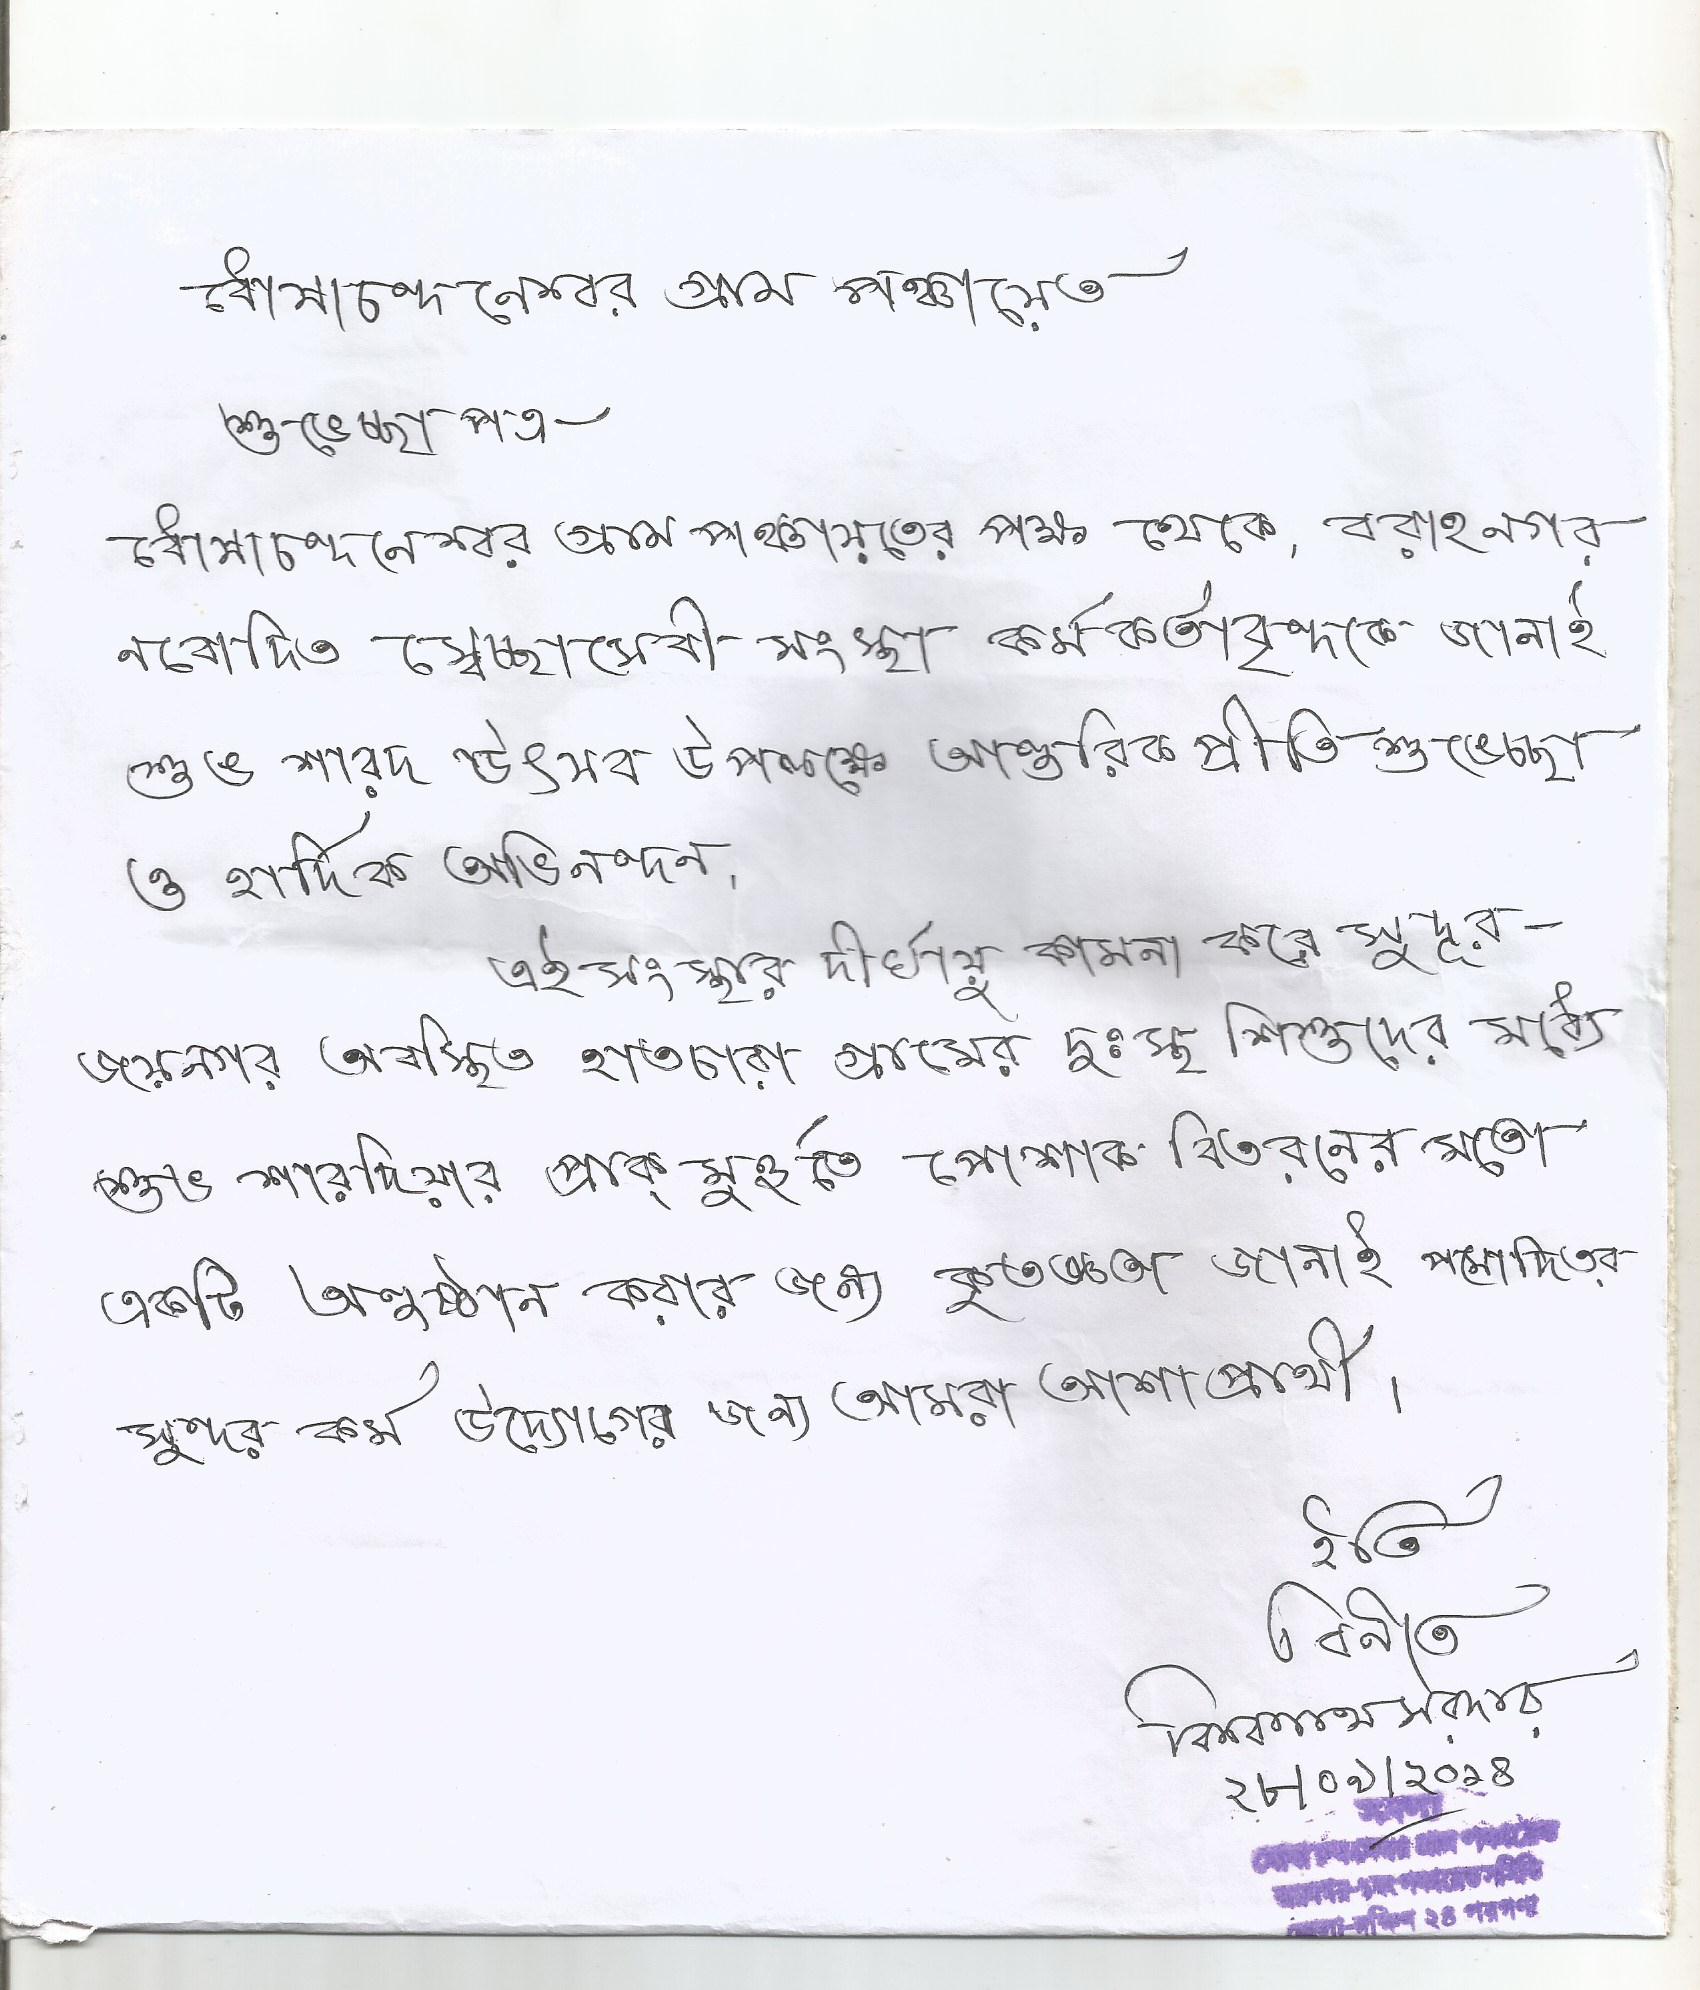 ধোষাচন্দনেশ্বর গ্রাম পঞ্চায়েত
শুভেচ্ছা পত্র
ধোষাচন্দনেশ্বর গ্রাম পঞ্চায়তের পক্ষ থেকে, বরাহনগর
নবোদিত স্বেচ্ছাসেবী সংস্থা কর্মকর্তাবৃন্দকে জানাই
শুভ শারদ উৎসব উপলক্ষে আন্তরিক প্রীতি শুভেচ্ছা
ও হার্দিক অভিনন্দন,
এই সংস্থার দীর্ঘায়ু কামনা করে সুদূর-
জয়নগর অবস্থিত হাতচারা গ্রামের দুঃস্থ শিশুদের মধ্যে
শুভ শারদিয়ার প্রাক্ মুহুর্তে পোশাক বিতরনের মতো
একটি অনুষ্ঠান করার জন্য কৃতজ্ঞতা জানাই
সুন্দর কর্ম উদ্যোগের জন্য আমরা আশাপ্রার্থী।
ইতি
বিনীত
বিশ্বনাথ সরদার
২৮/০৯/২০১৪
সদস্য
ধোষা চন্দনেশ্বর গ্রাম পঞ্চায়েত
জয়নগর-১নং পঞ্চায়েত সমিতি
জেলা-দক্ষিণ ২৪ পরগণা